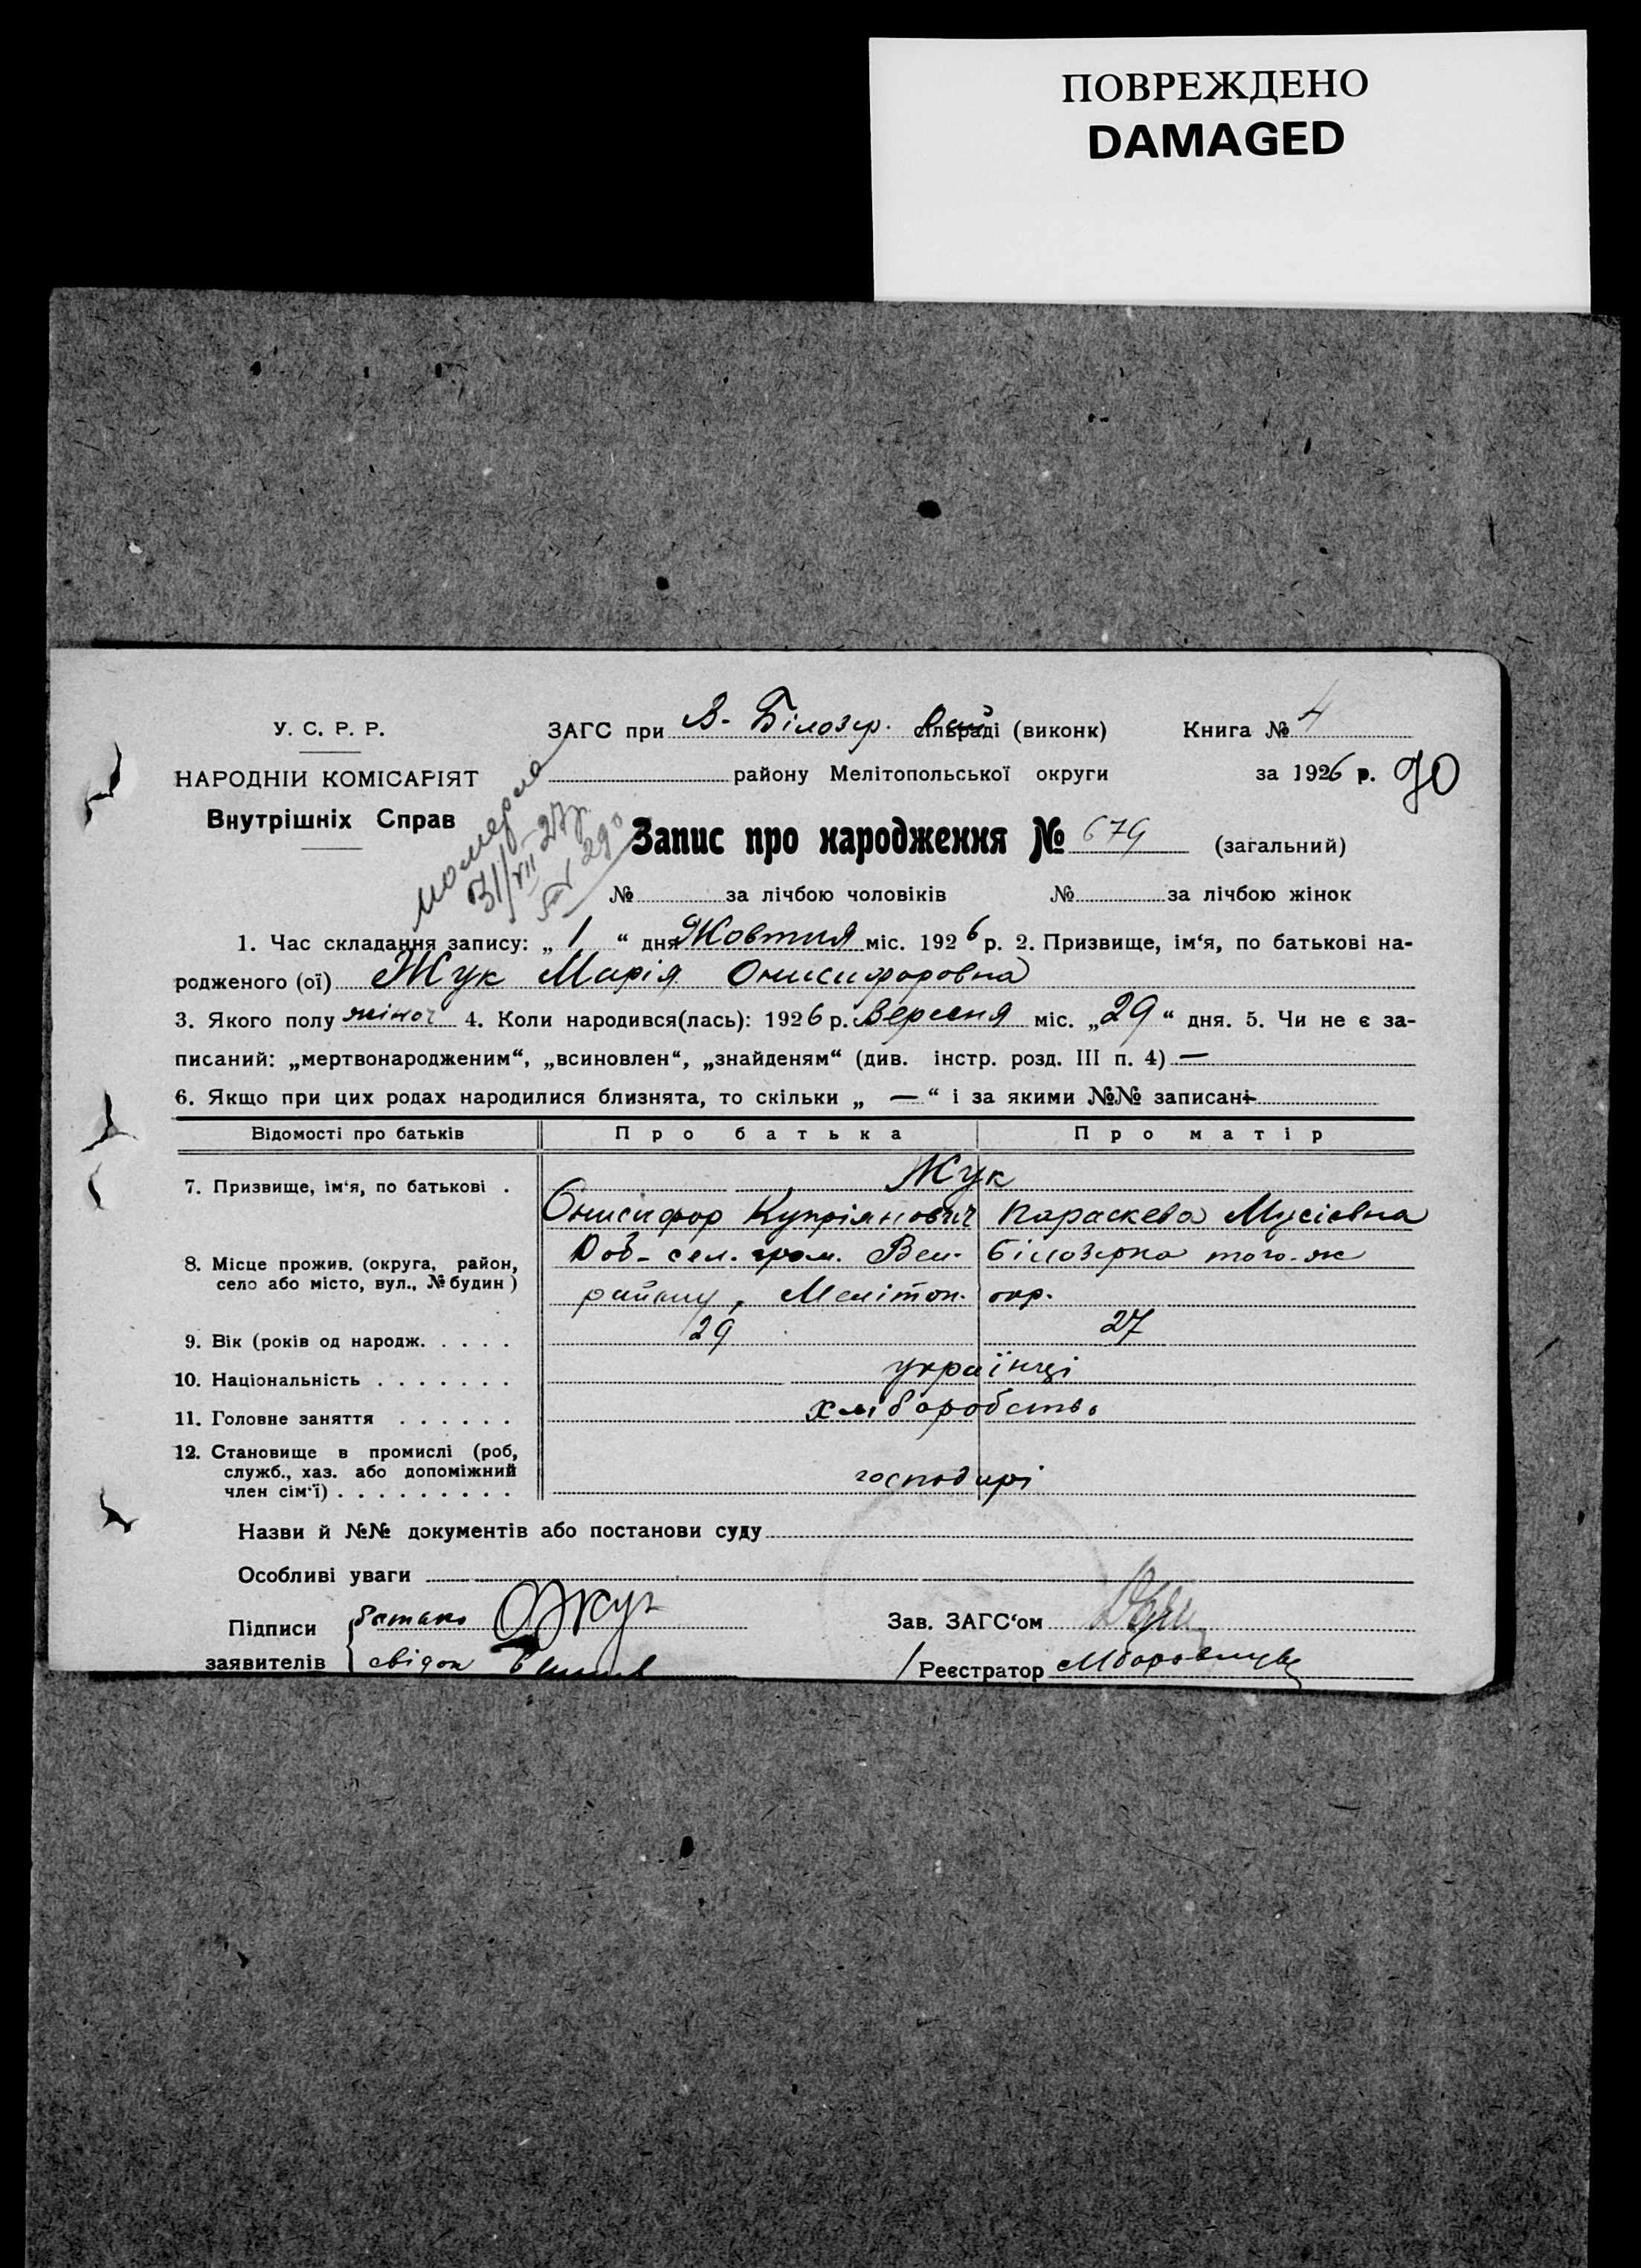 ПОВРЕЖДЕНО
DAMAGED
У. С. Р. Р.
НАРОДНІЙ КОМІСАРІЯТ
Внутрішніх Справ
ЗАГС при В- Білозер. сільраді (виконк) Книга № 4
району Мелітопольської округи за 1926 р. 90
померла
31/VII-27р
Запис про народження № 679 (загальний)
№ за лічбою чоловіків № за лічбою жінок
1. Час складання запису: „ 1 “ дня Жовтня міс. 1926 р. 2. Призвище, ім‘я, по батькові на-
родженого (ої) Жук Марія Онисифоровна
3. Якого полу жіноч 4. Коли народився(лась): 1926 р. Вересня міс. „29“ дня. 5. Чи не є за-
писаний: „мертвонародженим“, „всиновлен“, „знайденям“ (див. інстр. розд. III п. 4) —
6. Якщо при цих родах народилися близнята, то скільки „ — “ і за якими №№ записані -
Відомості про батьків Про батька Про матір
7. Призвище, ім‘я, по батькові . Жук
Онисифор Купріянович Параскева Мусієвна
8. Місце прожив. (округа, район, село або місто, вул., № будин) сел. гром. Вел- Білозерка того-ж
району, Меліток. окр.
9. Вік (років од народж. . . . . 29 27
10. Національність . . . . . . . українці
11. Головне заняття . . . . . . хліборобство
12. Становище в промислі (роб,
служб., хаз. або допоміжний
член сім‘ї) . . . . . . . . . господарі
Назви й №№ документів або постанови суду
Особливі уваги
Підписи батько ОЖук Зав. ЗАГС‘ом
заявителів свідок Реєстратор